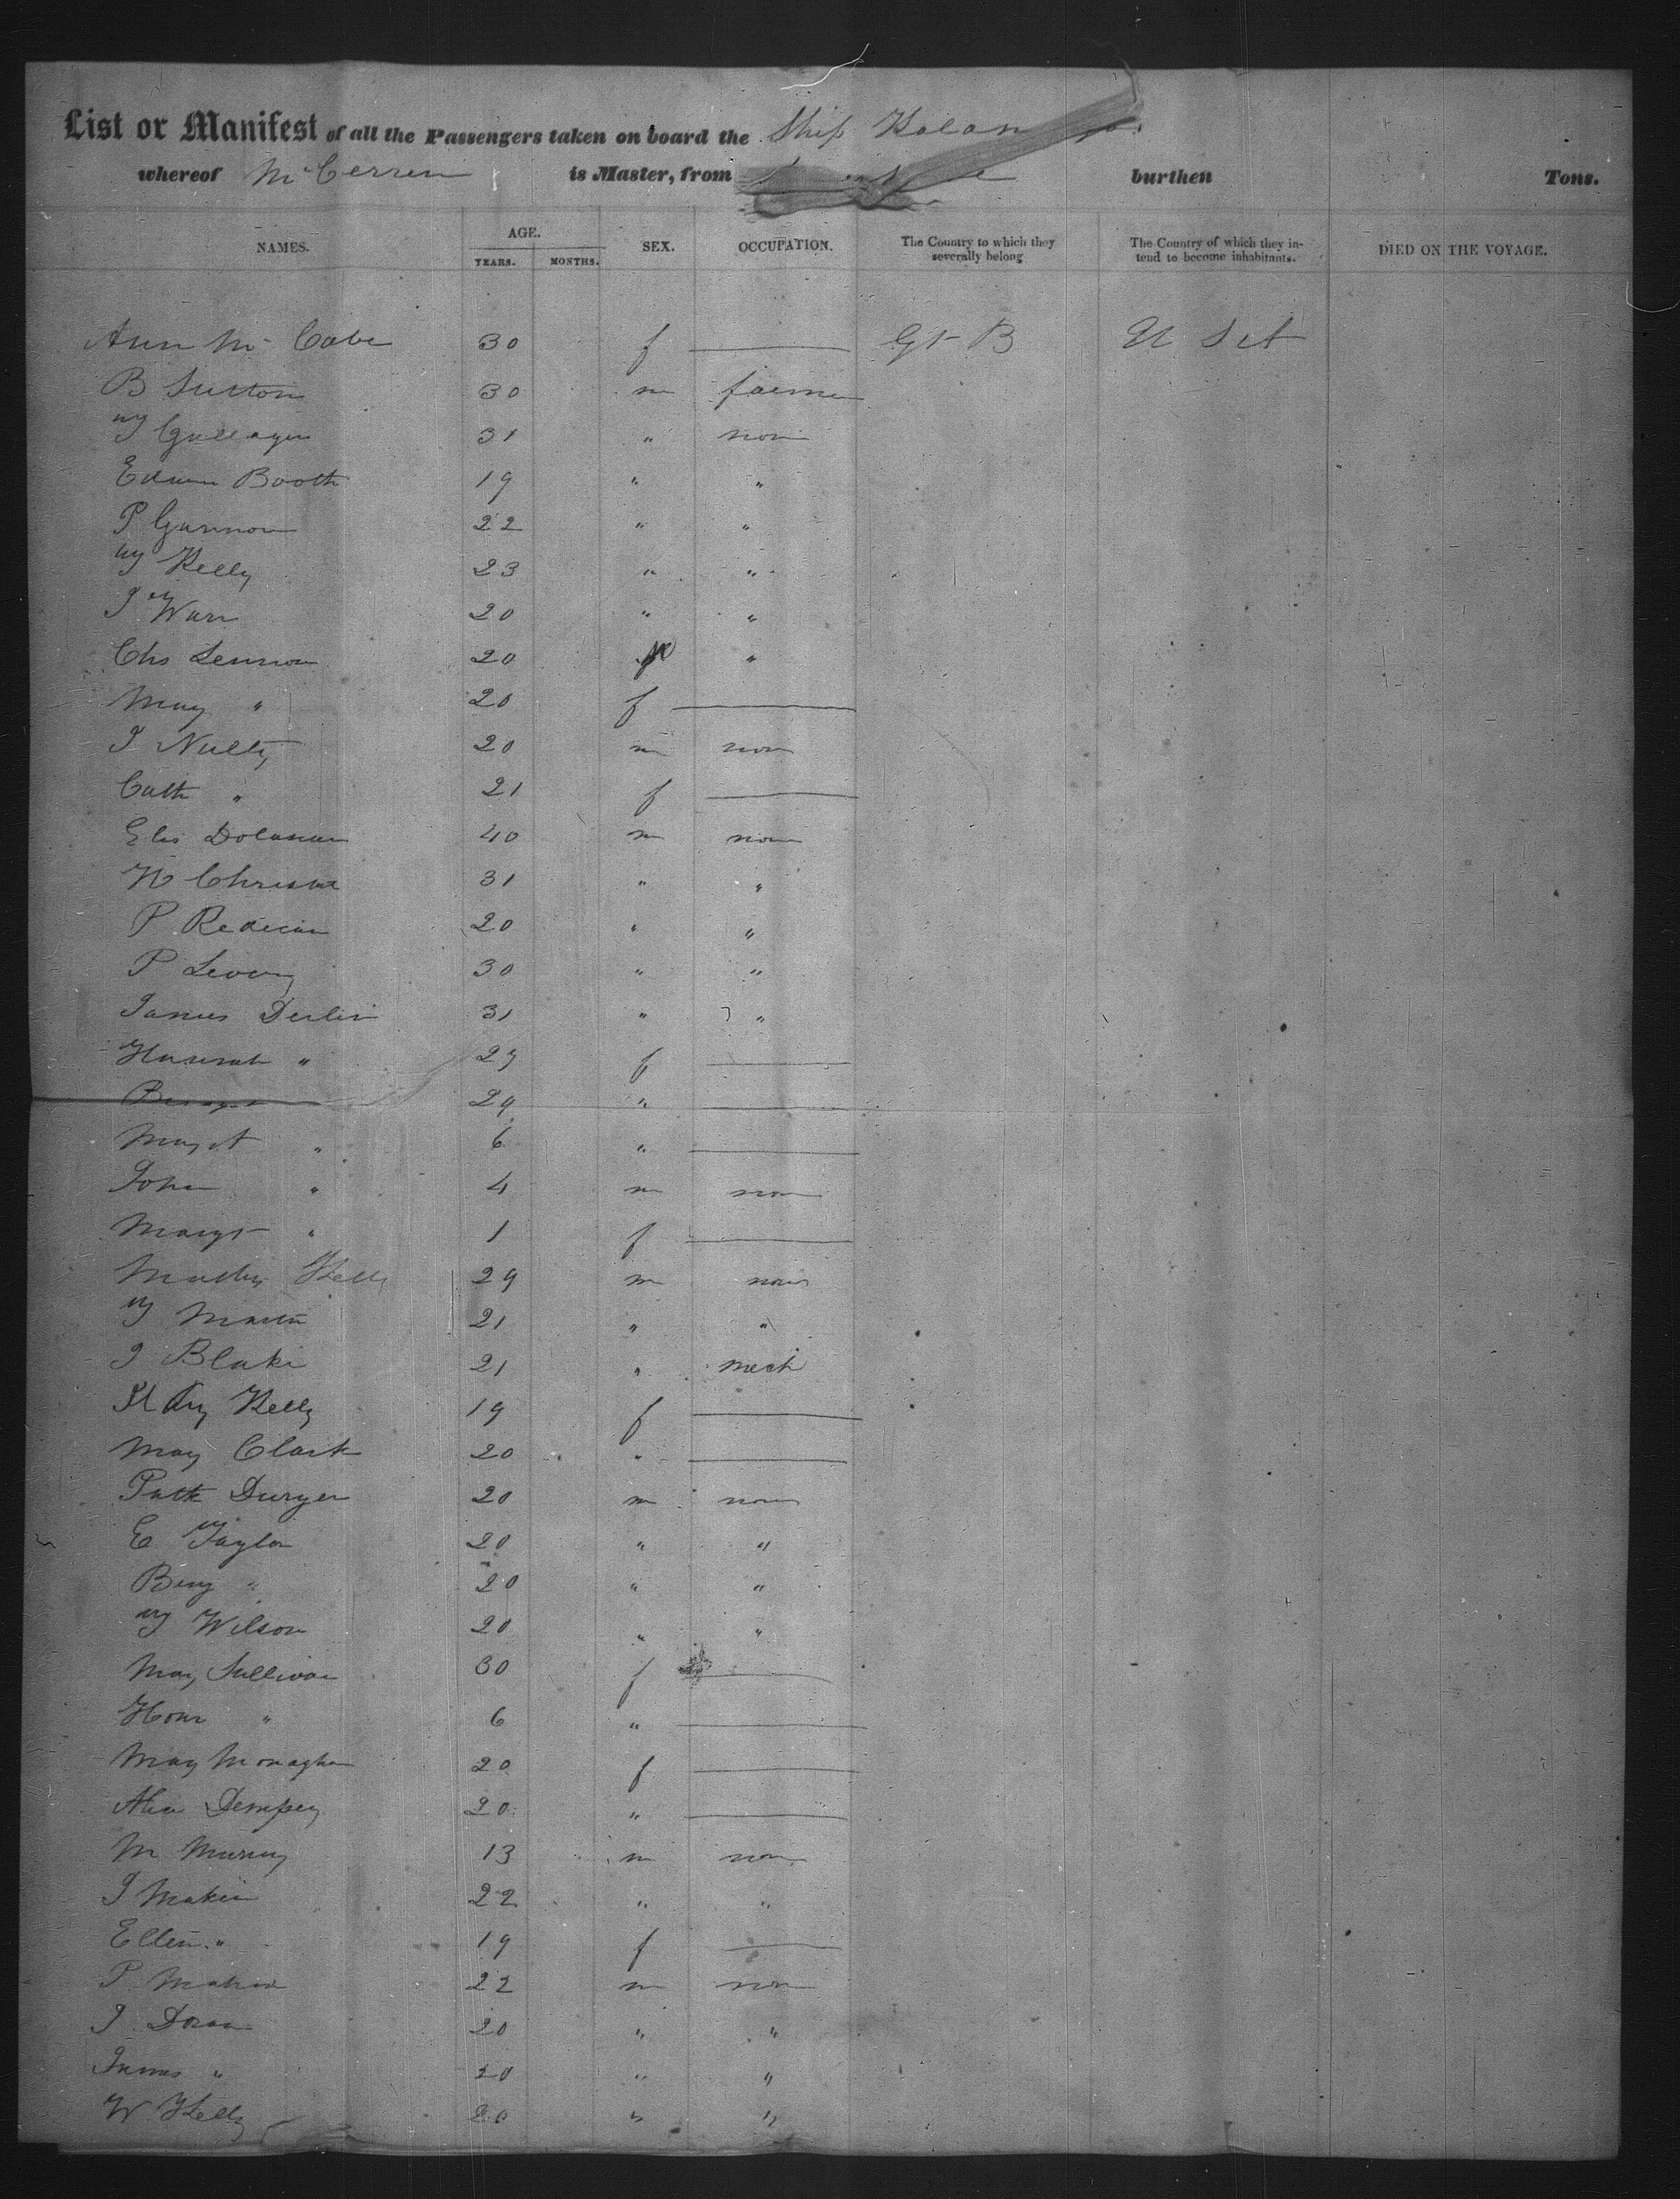 List or Manifest of all the Passengers taken on board the Ship
whereof McCerren is Master, from burthen Tons.
NAMES. AGE. SEX. OCCUPATION. The Country to which they severally belong The Country of which they intend to become inhabitants. DIED ON THE VOYAGE.
YEARS. MONTHS.
Ann Mc Cabe 30 f Gt B U St
B Sutton 30 m farmer
T 31 " non
Edwin Booth 19 " "
P Gannon 22 " "
T Kelly 23 " "
J Warr 20 " "
Chs Lennon 20 m "
Mary " 20 f
J Nulty 20 m non
Cath " 21 f
40 m non
31 " "
P Redican 20 " "
P 30 " "
James Derlin 31 " "
Hannah " 27 f
29 "
6 "
John " 4 m non
Margt " 1 f
Kelly 29 m non
T Martin 21 " "
J Blake 21 " mech
Kelly 19 f
Mary Clark 20 "
Patk Duryer 20 m non
E Taylor 20 " "
Benj " 20 " "
T Wilson 20 " "
Mary Sullivan 30 f
Honr " 6 "
Mary Monaghan 20 f
Alice Dempsey 20 "
M Murray 13 m non
J Makin 22 " "
Ellen " 19 f
P 22 m non
J Doran 20 " "
James " 20 " "
W Kelly 20 " "